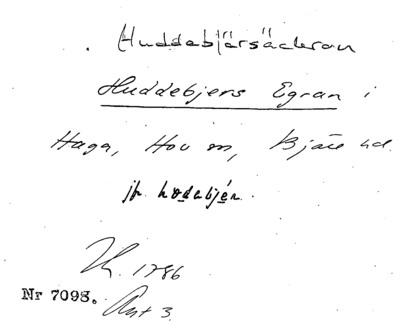 . Huddebjärsäckran
Huddebjers Egran i
Haga, Hov sn, Bjäre hd.
jfr hodabjén.
Th. 1786
Nr 7098. Akt 3